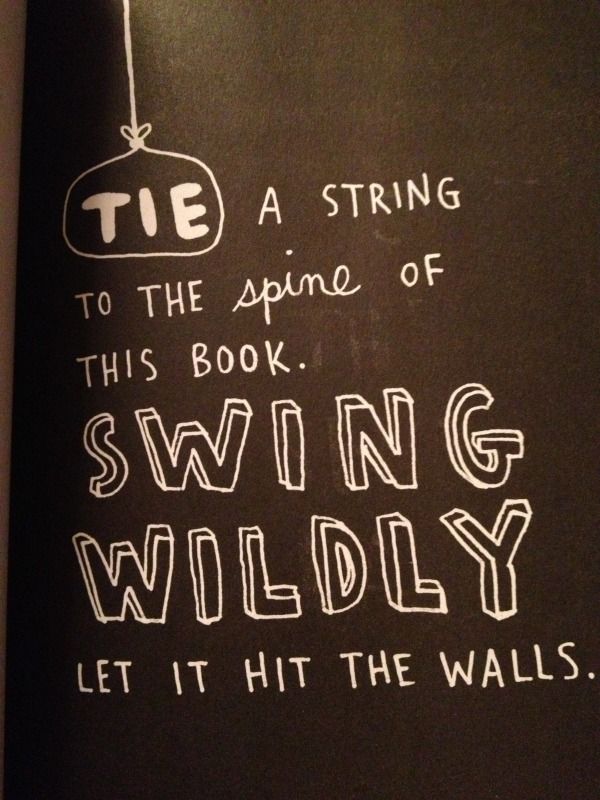 TIE A STRING
TO THE spine OF
THIS BOOK.
SWING
WILDLY
LET IT HIT THE WALLS.